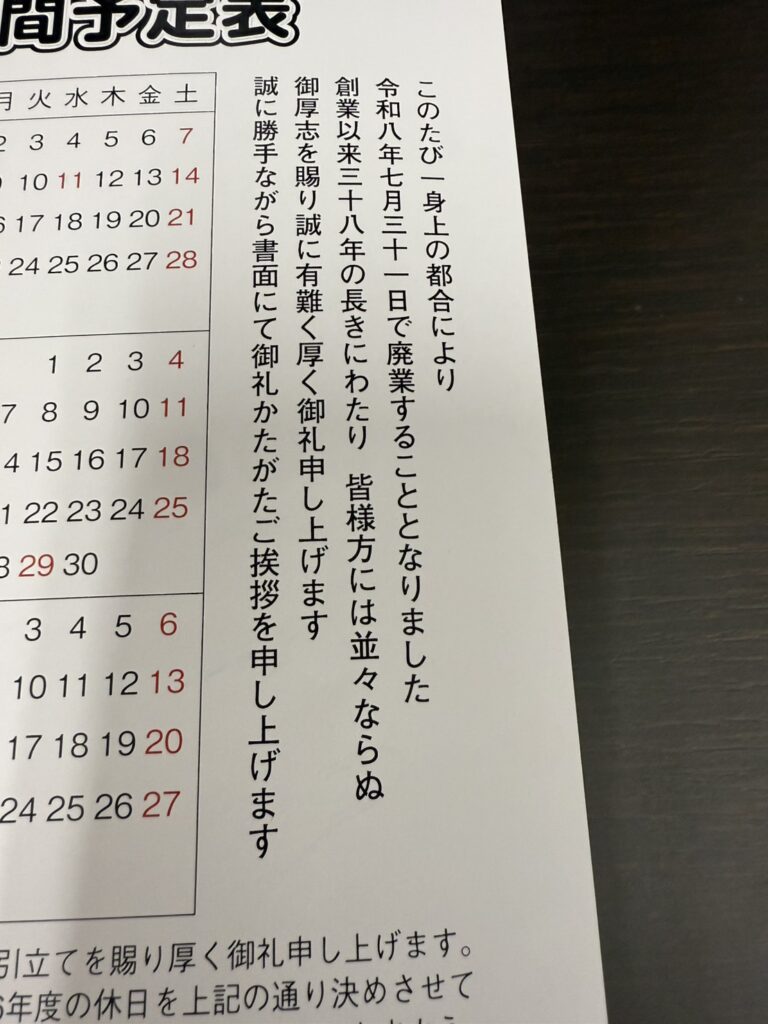 間予定表
このたび一身上の都合により
令和八年七月三十一日で廃業することとなりました
創業以来三十八年の長きにわたり 皆様方には並々ならぬ
御厚志を賜り誠に有難く厚く御礼申し上げます
誠に勝手ながら書面にて御礼かたがたご挨拶を申し上げます
月 火 水 木 金 土
2 3 4 5 6 7
9 10 11 12 13 14
6 17 18 19 20 21
24 25 26 27 28
1 2 3 4
7 8 9 10 11
4 15 16 17 18
1 22 23 24 25
8 29 30
3 4 5 6
10 11 12 13
17 18 19 20
24 25 26 27
引立てを賜り厚く御礼申し上げます。
6年度の休日を上記の通り決めさせて